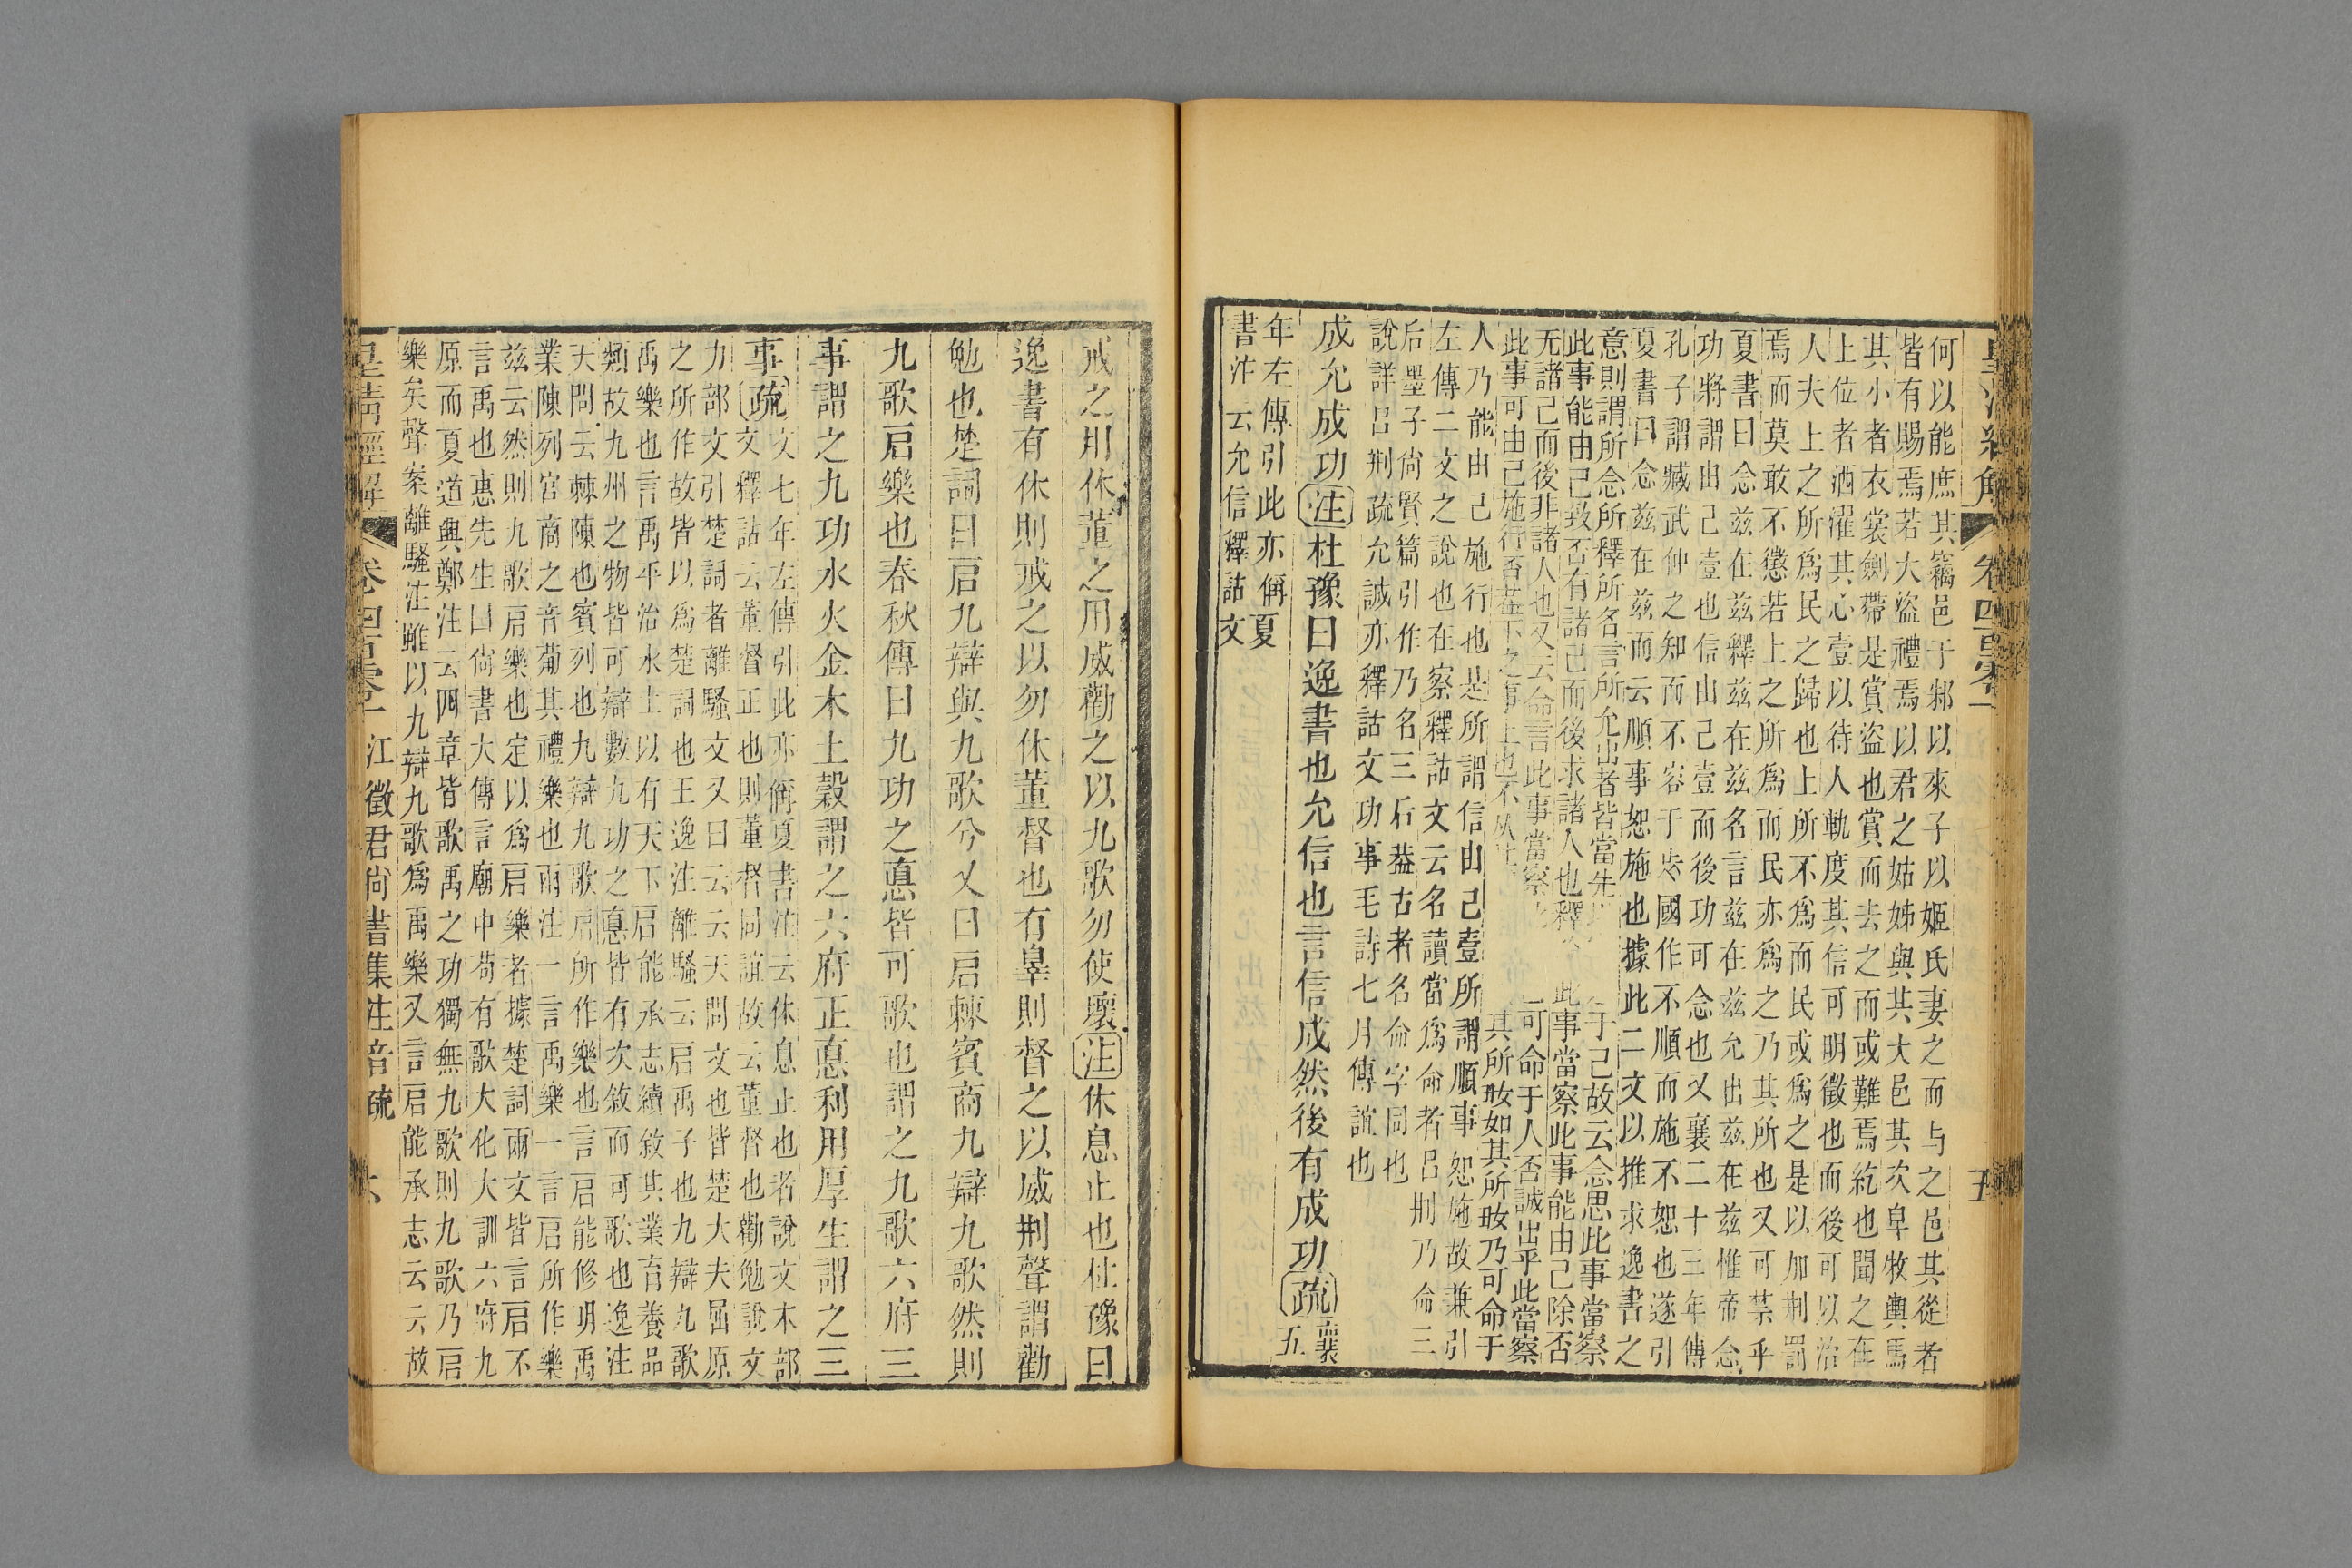 皇清經解
卷四百零一
五
何以能庶其竊邑于邾以來子以姬氏妻之而与之邑其從者
皆有賜焉若大盜禮焉以君之姑姊與其大邑其次皁牧輿馬
其小者衣裳劍帶是賞盜也賞而去之而或難焉紇也聞之在
上位者洒濯其心壹以待人軌度其信可明徵也而後可以治
人夫上之所爲民之歸也上所不爲而民或爲之是以加刑罰
焉而莫敢不懲若上之所爲而民亦爲之乃其所也又可禁乎
夏書曰念兹在兹釋兹在兹名言兹在兹允出兹在兹惟帝念
功將謂由己壹也信由己壹而後功可念也又襄二十三年傳
孔子謂臧武仲之知而不容于 國作不順而施不恕也遂引
夏書曰念兹在兹而云順事恕施也據此二文以推求逸書之
意則謂所念所釋所名言所允出者皆當先 于己故云念思此事當察
此事能由己致否有諸己而後求諸人也釋 此事當察此事能由己除否
无諸己而後非諸人也又云命言此事當察 可命于人否誠出乎此當察
此事可由己施行否 下之事上也不從 其所 如其所 乃可命于
人乃能由己施行也是所謂信由己壹所謂順事恕施故兼引
左傳二文之說也在察釋詁文云名讀當爲命者呂刑乃命三
后墨子尙賢篇引作乃名三后葢古者名命字同也
說詳呂刑疏允誠亦釋詁文功事毛詩七月傳誼也
成允成功注杜豫曰逸書也允信也言信成然後有成功疏襄五
年左傳引此亦偁夏
書注云允信釋詁文
戒之用休董之用威勸之以九歌勿使壞注休息止也杜豫曰
逸書有休則戒之以勿休董督也有辠則督之以威刑聲謂勸
勉也楚詞曰启九辯與九歌兮又曰启棘賓商九辯九歌然則
九歌启樂也春秋傳曰九功之悳皆可歌也謂之九歌六府三
事謂之九功水火金木土穀謂之六府正悳利用厚生謂之三
事疏文七年左傳引此亦偁夏書注云休息止也者說文木部
文釋詁云董督正也則董督同誼故云董督也勸勉說文
力部文引楚詞者離騷文又曰云云天問文也皆楚大夫屈原
之所作故皆以爲楚詞也王逸注離騷云启禹子也九辯九歌
禹樂也言禹平治水土以有天下启能承志續敘其業育養品
類故九州之物皆可辯數九功之悳皆有次敘而可歌也逸注
天問云棘陳也賓列也九辯九歌启所作樂也言启能修明禹
業陳列宮商之音葡其禮樂也兩注一言禹樂一言启所作樂
兹云然則九歌启樂也定以爲启樂者據楚詞兩文皆言启不
言禹也惠先生曰尙書大傳言廟中苟有歌大化大訓六府九
原而夏道興鄭注云四章皆歌禹之功獨無九歌則九歌乃启
樂矣聲案離騷注雖以九辯九歌爲禹樂又言启能承志云云故
皇清經解
卷四百零一
江徵君尙書集注音疏
六